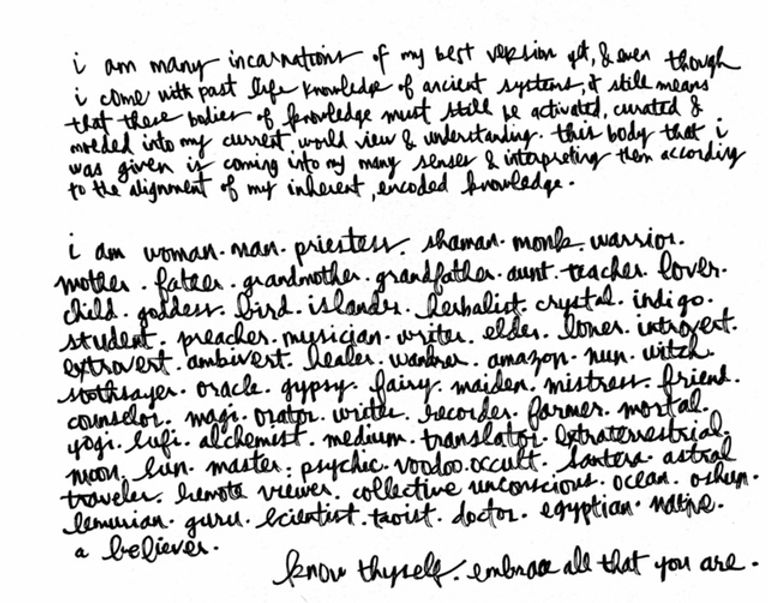 i am many incarnations of my best version yet, & even though
i come with past life knowledge of ancient systems, it still means
that these bodies of knowledge must still be activated, curated &
molded into my current world view & understanding. this body that i
was given is coming into my many senses & interpreting them according
to the alignment of my inherent, encoded knowledge.
i am woman. man. priestess. shaman. monk. warrior.
mother. father. grandmother. grandfather. aunt. teacher. lover.
child. goddess. bird. islander. herbalist. crystal. indigo.
student. preacher. musician. writer. elder. loner. introvert.
extrovert. ambivert. healer. wandrer. amazon. nun. witch.
soothsayer. oracle. gypsy. fairy. maiden. mistress. friend.
counselor. magi. orator. writer. recorder. farmer. mortal.
yogi. sufi. alchemist. medium. translator. extraterrestrial.
moon. sun. master. psychic. voodoo. occult. santera. astral
traveler. remote viewer. collective unconscious. ocean. oshun.
lemurian. guru. scientist. taoist. doctor. egyptian. native.
a believer.
know thyself. embrace all that you are.